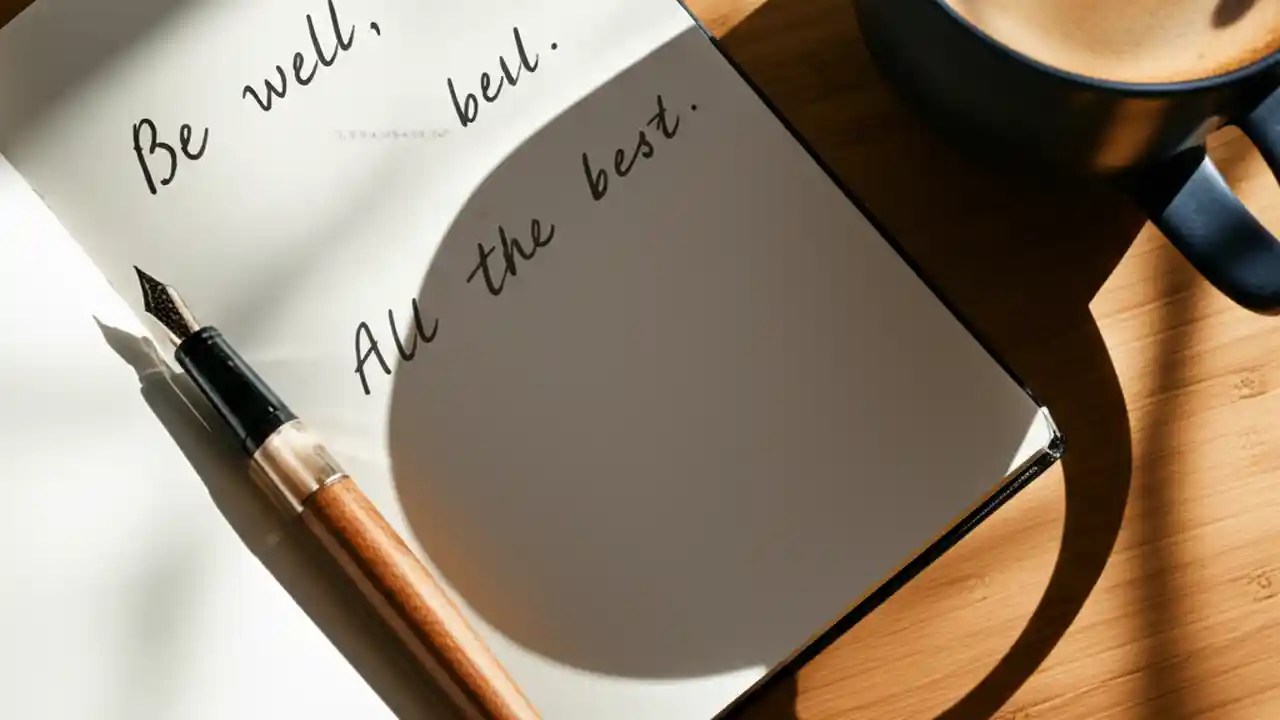 Be well,
bell.
All the best.